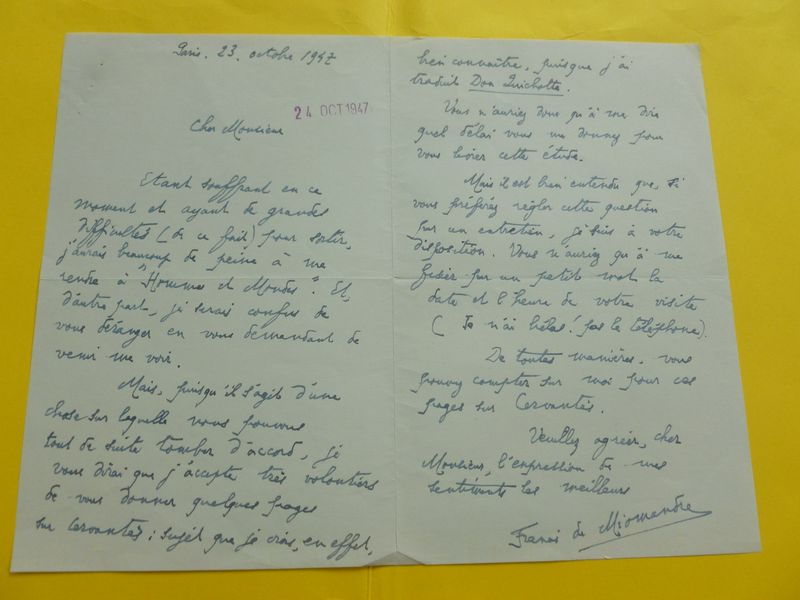 Paris. 23. octobre 1947
24 OCT 1947
Cher Monsieur
Etant souffrant en ce
moment et ayant de grandes
difficultés (de ce fait) pour sortir,
j'aurais beaucoup de peine à me
rendre à "Hommes et Mondes". Et,
d'autre part, je serais confus de
vous déranger en vous demandant de
venir me voir.
Mais, puisqu'il s'agit d'une
chose sur laquelle nous pouvons
tout de suite tomber d'accord, je
vous dirai que j'accepte très volontiers
de vous donner quelques pages
sur Cervantès ; sujet que je crois, en effet,
bien connaître, puisque j'ai
traduit Don Quichotte.
Vous n'auriez donc qu'à me dire
quel délai vous me donnez pour
vous livrer cette étude.
Mais il est bien entendu que, si
vous préférez régler cette question
par un entretien, je suis à votre
disposition. Vous n'auriez qu'à me
fixer par un petit mot la
date et l'heure de votre visite
(Je n'ai hélas! pas le téléphone).
De toutes manières, vous
pouvez compter sur moi pour ces
pages sur Cervantès.
Veuillez agréer, cher
Monsieur, l'expression de mes
sentiments les meilleurs
Francis de Miomandre